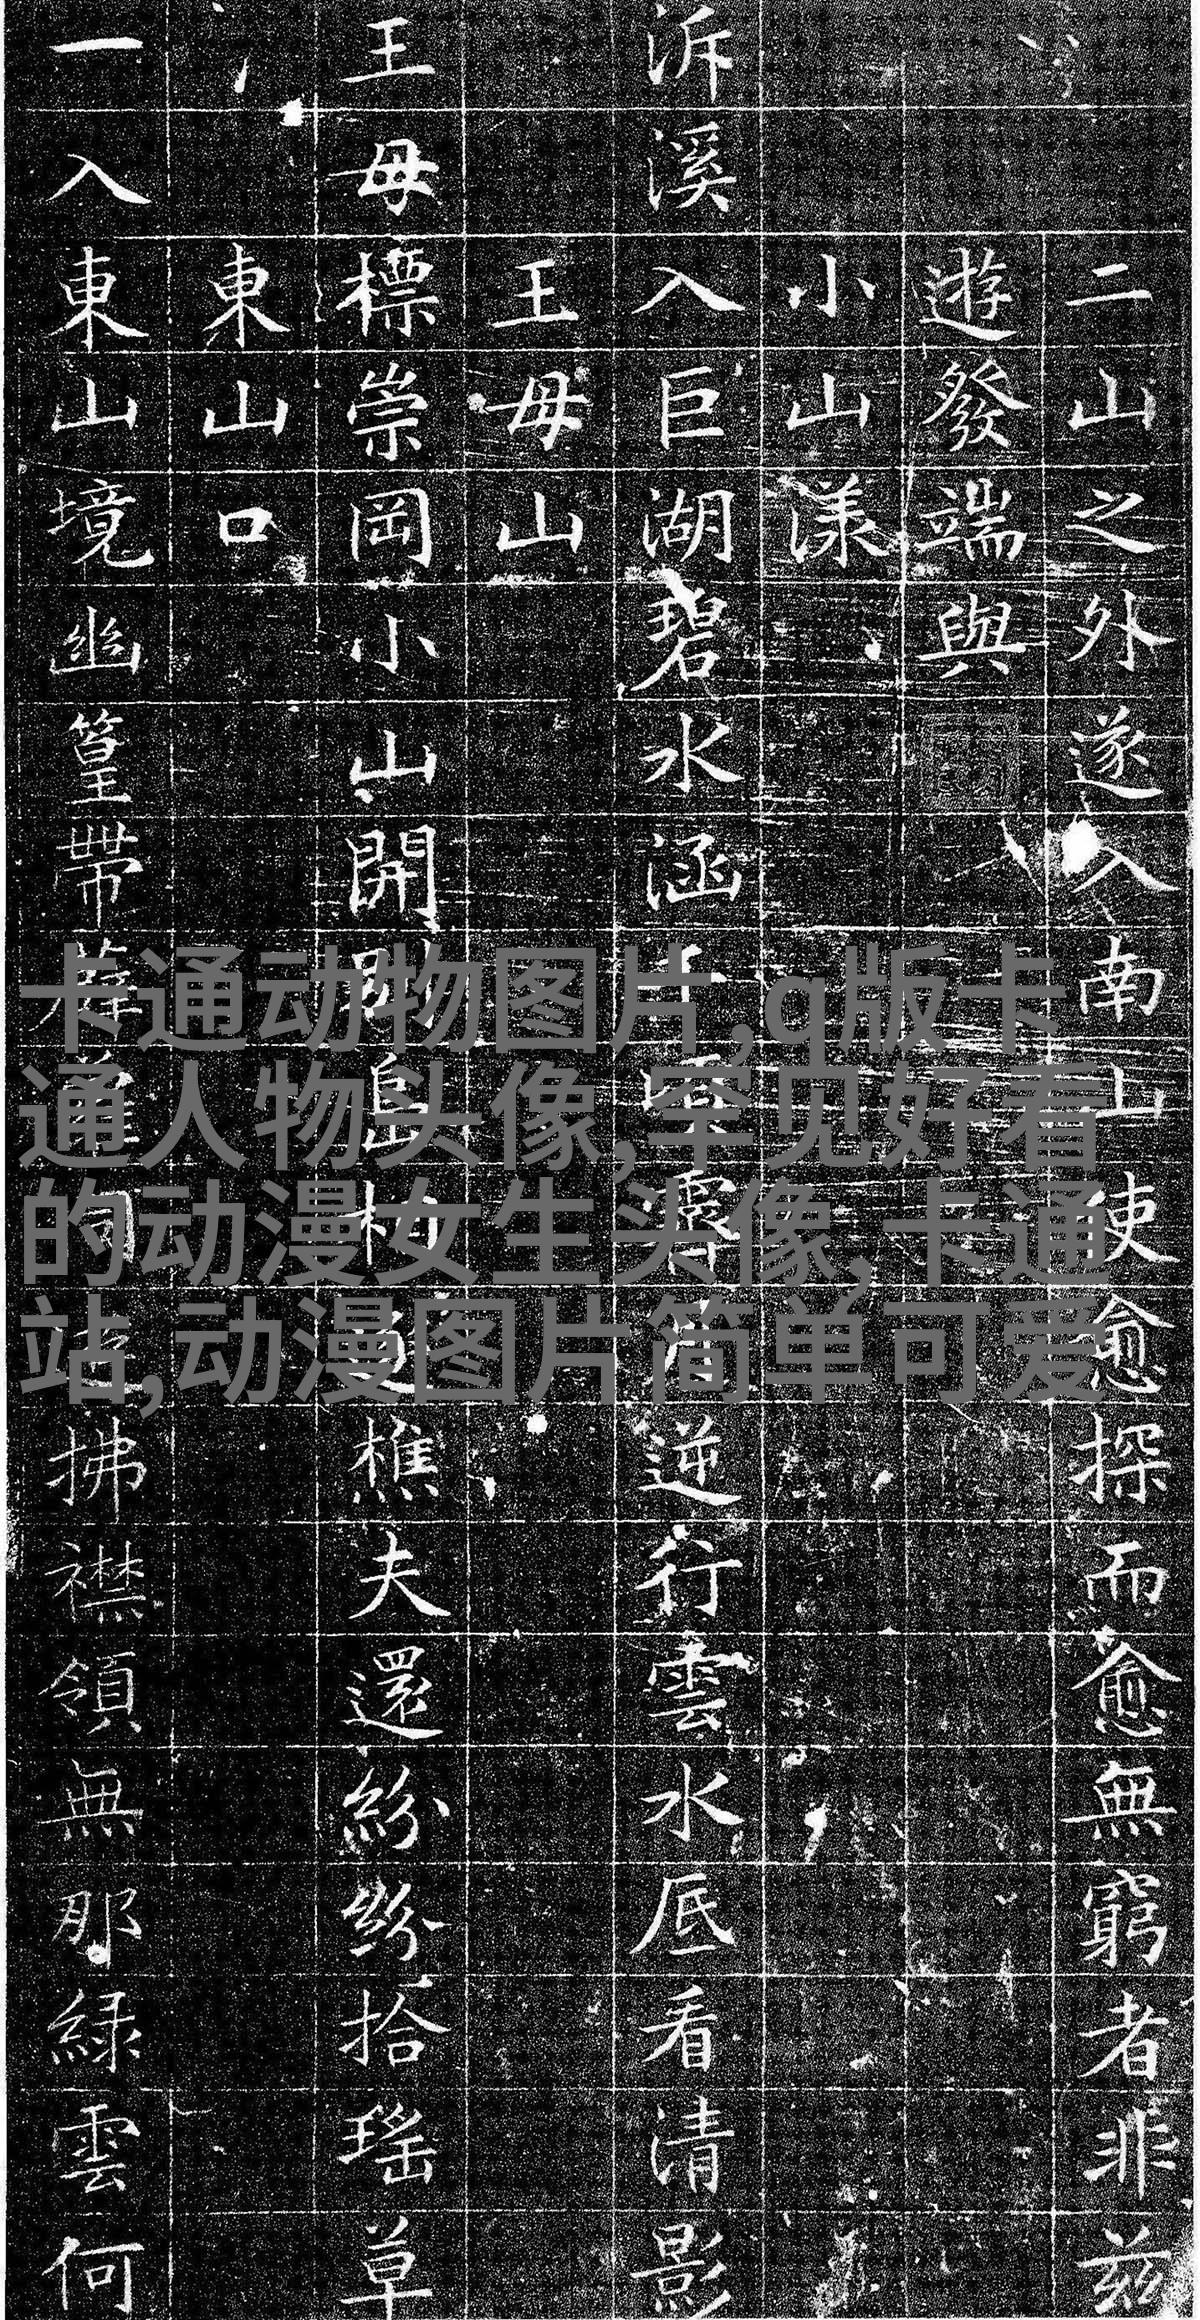 二山之外遂入南山使愈探而愈無窮者非茲
遊發端與
小山漾
泝溪入巨湖碧水涵逆行雲水底看清影
王母山
王母標崇岡小山開樵夫還紛紛拾瑤草
東山口
一入東山境幽篁帶拂襟領無那緑雲何
卡通动物图片,q版卡
通人物头像,罕见好看
的动漫女生头像,卡通
站,动漫图片简单可爱